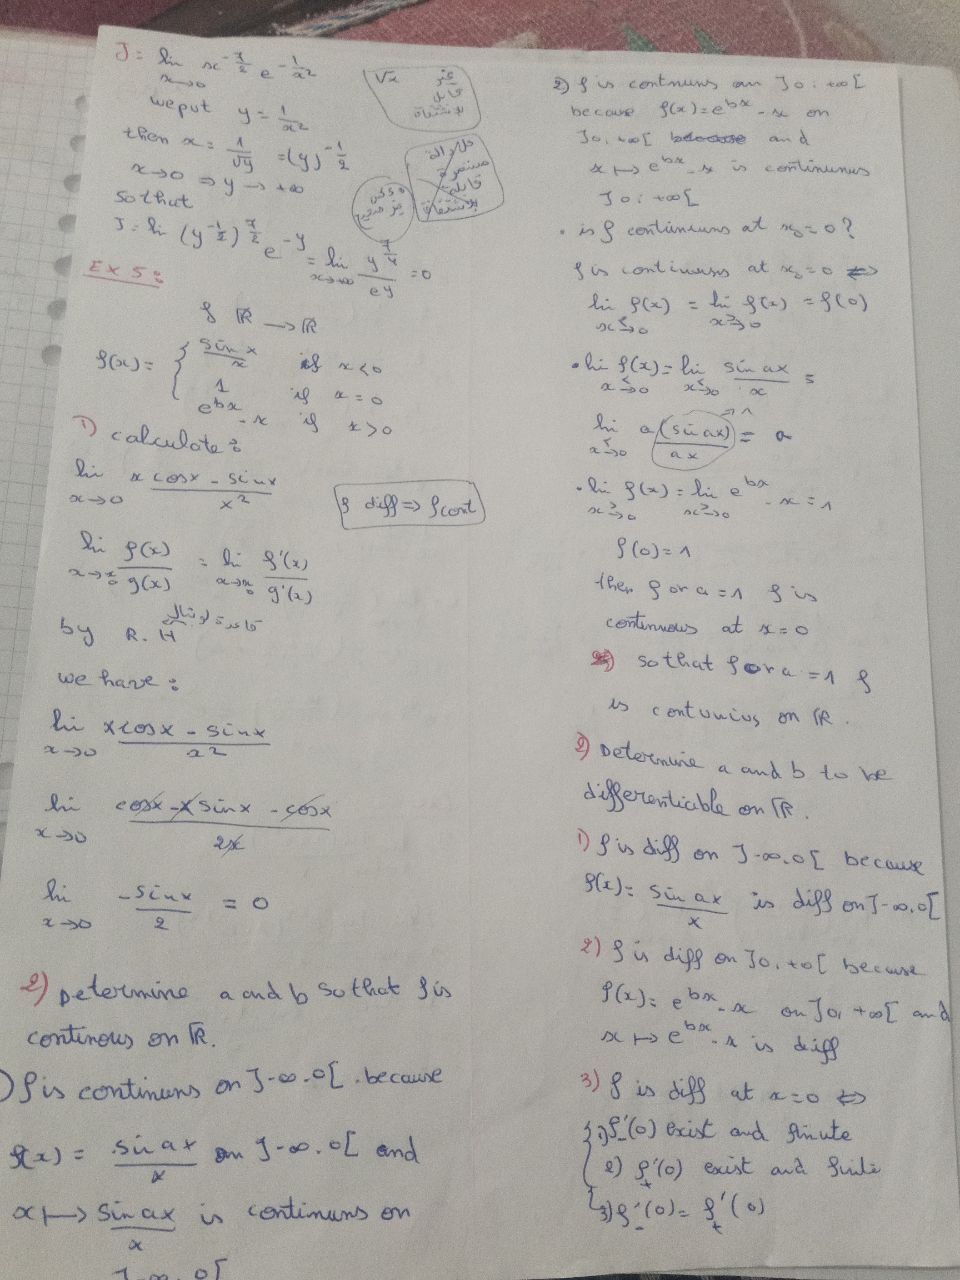 J = lim x→0 x^{-7/2} e^{-1/x²}
we put y = 1/x²
then x = 1/√y = (y)^{-1/2}
x→0 ⇒ y → +∞
so that
J = lim (y^{-1/2})^{7/2} e^{-y} = lim x→+∞ y^{7/4}/e^y = 0
√x غير
قابل
للاشتقاق
كل دالة
مستمرة
قابلة
للاشتقاق
EX 5:
f ℝ → ℝ
f(x) = { sin x / x if x < 0
1 if x = 0
e^{bx} - x if x > 0
1) calculate:
lim x→0 (x cosx - sinx)/x²
f diff ⇒ f cont
lim x→x₀ f(x)/g(x) = lim x→x₀ f'(x)/g'(x)
by R.H قاعدة لوبيتال
we have:
lim x→0 (x cosx - sinx)/x²
lim x→0 (cosx - x sinx - cosx)/2x
lim x→0 -sinx/2 = 0
2) Determine a and b so that f is
continous on ℝ.
) f is continuns on ]-∞.0[ . because
f(x) = sin ax / x on ]-∞.0[ and
x ↦ sin ax / x is continuns on
]-∞.0[
2) f is continuns on ]0, +∞[
because f(x) = e^{bx} - x on
]0, +∞[ because and
x ↦ e^{bx} - x is continuns
]0, +∞[
• is f continuns at x₀ = 0 ?
f is continuns at x₀ = 0 ⇔
lim x→<0 f(x) = lim x→>0 f(x) = f(0)
• lim x→<0 f(x) = lim x→<0 sin ax / x =
lim x→<0 a (sin ax)/ax →1 = a
• lim x→>0 f(x) = lim x→>0 e^{bx} - x = 1
f(0) = 1
then for a = 1 f is
continuous at x = 0
so that for a = 1 f
is contunius on ℝ.
2) Determine a and b to be
differenticable on ℝ.
1) f is diff on ]-∞.0[ because
f(x) = sin ax / x is diff on ]-∞.0[
2) f is diff on ]0, +∞[ because
f(x) = e^{bx} - x on ]0, +∞[ and
x ↦ e^{bx} - x is diff
3) f is diff at x = 0 ⇔
{ 1) f'₋(0) exist and finute
2) f'₊(0) exist and finite
3) f'₋(0) = f'₊(0)